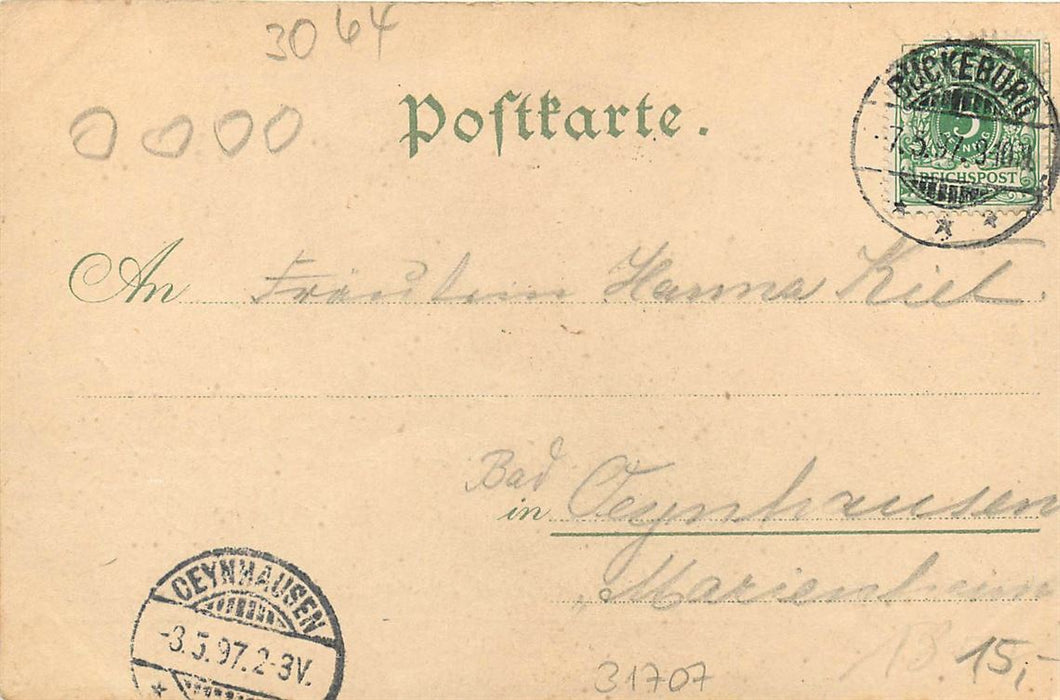 3064
0000
Postkarte.
BÜCKEBURG
7.5.97. 9-10 N.
5
PFENNIG
REICHSPOST
An Fräulein Hanna Kiel.
Bad
in Oeynhausen
Marienheim
OEYNHAUSEN
-8.5.97.2-3V.
13 15,-
31707